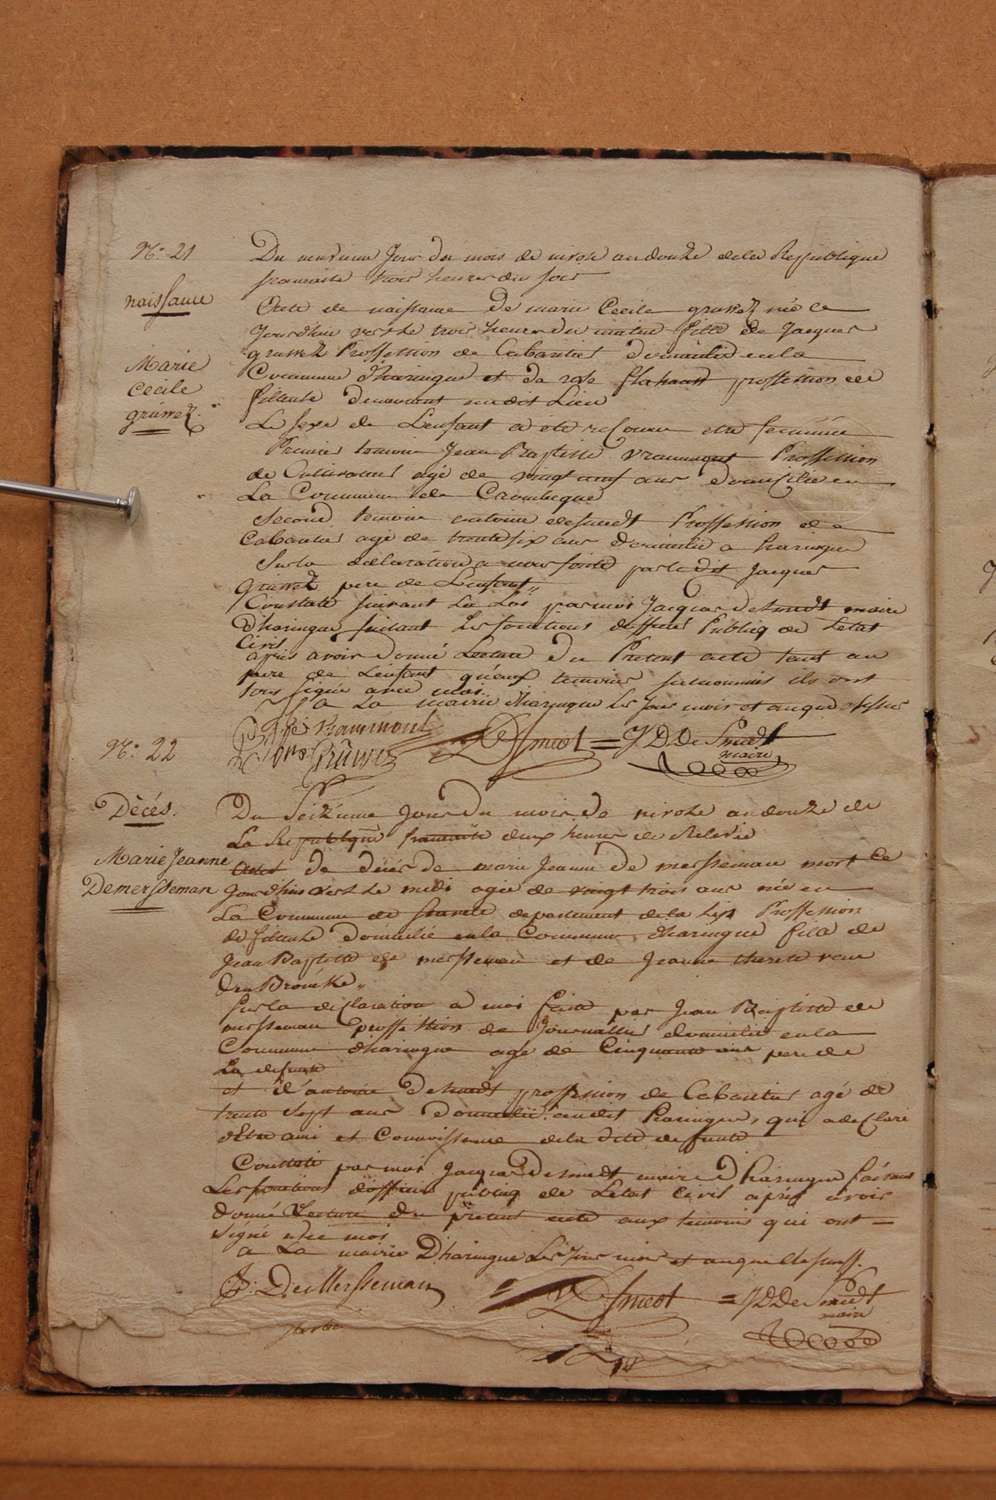 N.° 21
naissance
Marie
Cecile
gruwez
Du neuvieme Jour du mois de nivose an douze de la Republique
francaise trois heures du soir
Acte de naissance de marie Cecile gruwez née ce
Jourdhui vers le trois heures du matin fille de Jacques
gruwez Proffession de Cabartier domicilié en la
Commune d'haringue et de rose flahault proffession de
fileuse demeurant audit Lieu
Le sexe de L'enfant a été reconnu etre feminin
Premier temoin Jean Baptiste vrammont Proffession
de Cultivateur agé de vingt neuf ans domicilié en
La Commune de Crombeque
Second temoin antoine desmedt Proffession de
Cabartier agé de trente six ans domicilié a haringue
Sur la declaration a nous faite par ledit Jacques
Gruwez pere de L'enfant
Constaté suivant La Loi par moi Jacques desmedt maire
D'haringue faisant Les fonctions d'officier Publiq de L'etat
Civil
après avoir donné Lecture du Present acte tant au
pere de L'enfant qu'aux temoins susnommés ils ont
tous signé avec moi
a La mairie d'haringue Les Jour mois et an que dessus
Vrammont
Gruwez
Dsmedt = J D De Smedt
maire
N.° 22
Décés.
Marie Jeanne
Demersseman
Du Seizieme Jour du mois de nivose an douze de
La Republique francaise deux heures de Relevée
Acte de décés de marie Jeanne de mersseman mort ce
Jourdhui vers le midi agée de vingt trois ans née en
La Commune de departement de la Lys Proffession
de fileuse domicilié en la Commune d'haringue fille de
Jean Baptiste de mersseman et de Jeanne therese
Sur la declaration a moi faite par Jean Baptiste de
mersseman proffession de Journallier domicilié en la
Commune d'haringue agé de Cinquante ans pere de
La defunte
et d'antoine Desmedt proffession de Cabartier agé de
trente Sept ans domicilié audit haringue, qui a declaré
d'Etre ami et Connoissance de la dite defunte
Constaté par moi Jacques Desmedt maire D'haringue faisant
Les fonctions d'officier publiq de L'etat Civil après avoir
donné Lecture du present acte aux temoins qui ont
Signé avec moi
a La mairie D'haringue Les Jour mois et an que dessus.
J. B. De Mersseman
Dsmedt = J D De Smedt
maire